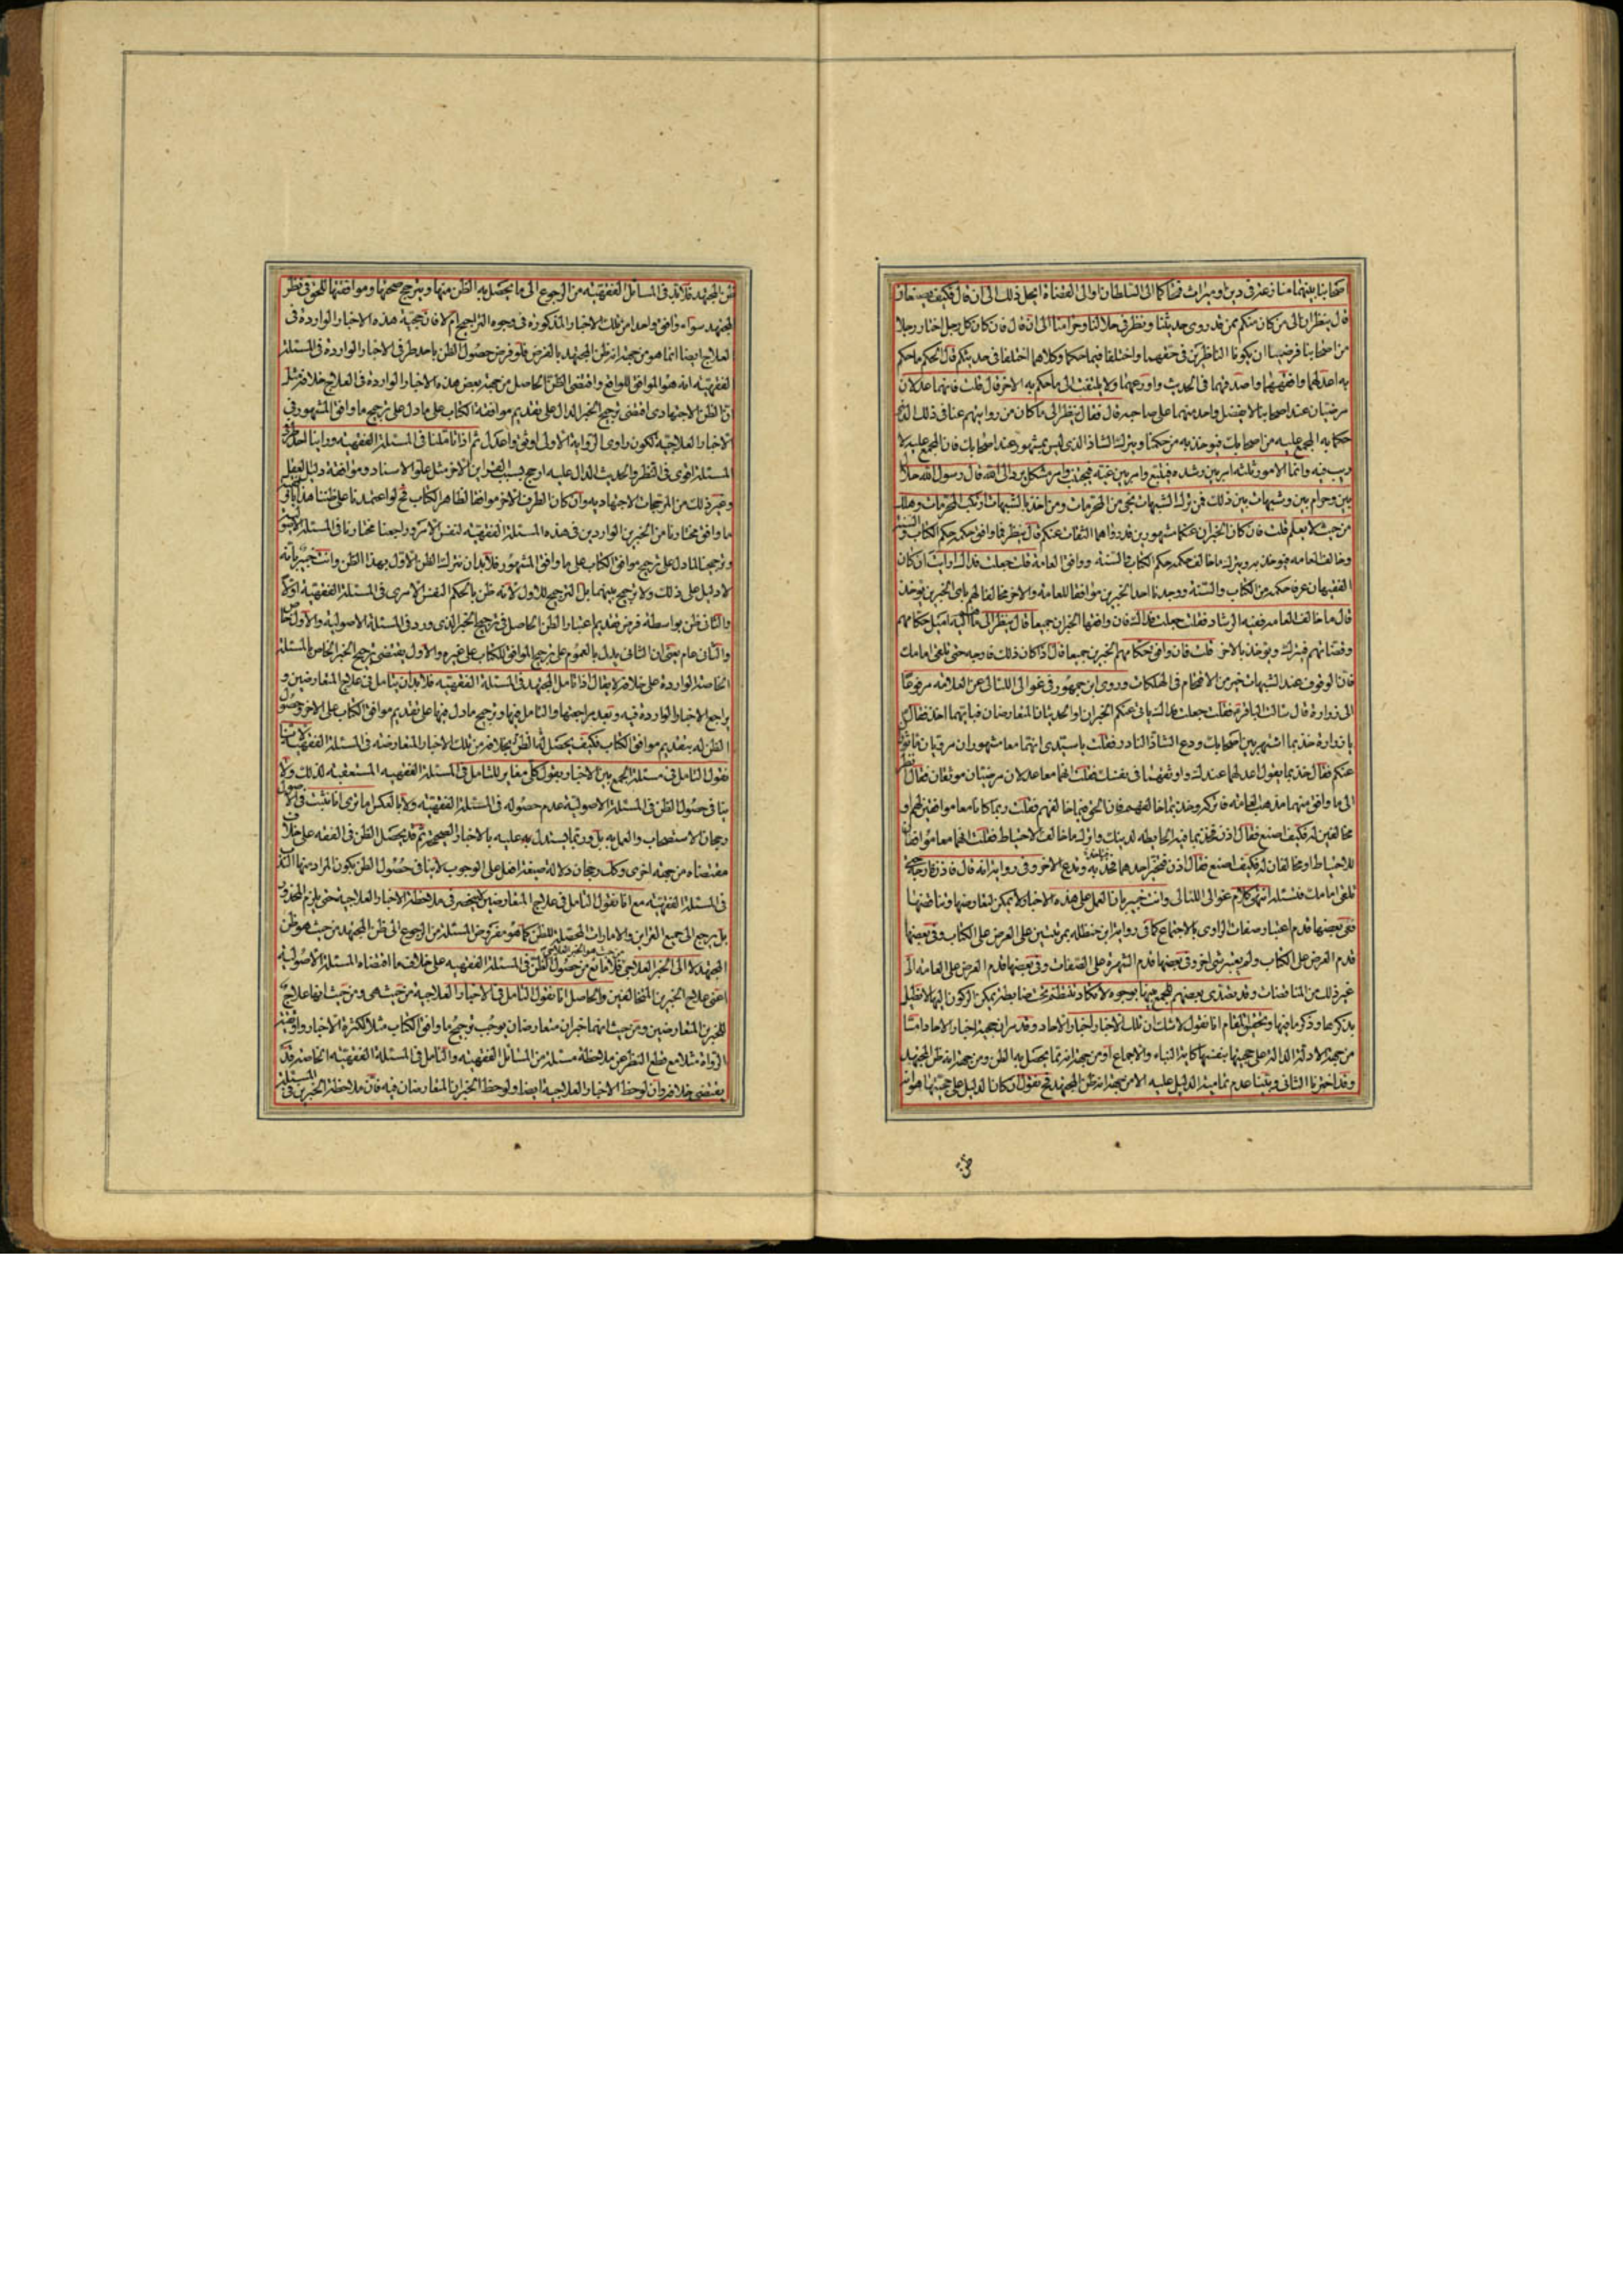 اصحابنا بينهما منازعة في دين او ميراث فتحاكما الى السلطان او الى القضاة ايحل ذلك الى ان قال فكيف يصنعان
قال ينظران الى من كان منكم ممن قد روى حديثنا ونظر في حلالنا وحرامنا الى ان قال فان كان كل رجل اختار رجلا
من اصحابنا فرضيا ان يكونا الناظرين في حقهما واختلفا فيما حكما وكلاهما اختلفا في حديثكم قال الحكم ما حكم
به اعدلهما وافقههما واصدقهما في الحديث واورعهما ولا يلتفت الى ما حكم به الاخر قال قلت فانهما عدلان
مرضيان عند اصحابنا لا يفضل واحد منهما على صاحبه قال فقال ينظر الى ما كان من روايتهم عنا في ذلك الذى
حكما به المجمع عليه من اصحابك فيؤخذ به من حكمنا ويترك الشاذ الذى ليس بمشهور عند اصحابك فان المجمع عليه لا
ريب فيه وانما الامور ثلثه امر بين رشده فيتبع وامر بين غيه فيجتنب وامر مشكل يرد الى الله قال رسول الله حلال
بين وحرام بين وشبهات بين ذلك فمن ترك الشبهات نجى من المحرمات ومن اخذ بالشبهات ارتكب المحرمات وهلك
من حيث لا يعلم قلت فان كان الخبران عنكما مشهورين قد رواهما الثقات عنكم قال ينظر فما وافق حكمه حكم الكتاب والسنة
وخالف العامه فيؤخذ به ويترك ما خالف حكمه حكم الكتاب والسنة ووافق العامة قلت جعلت فداك ارايت ان كان
الفقيهان عرفا حكمه من الكتاب والسنة ووجدنا احد الخبرين موافقا للعامه والاخر مخالفا لهم باى الخبرين يؤخذ
قال ما خالف العامه ففيه الرشاد فقلت جعلت فداك فان وافقهما الخبران جميعا قال ينظر الى ما هم اليه اميل حكامهم
وقضاتهم فيترك ويؤخذ بالاخر قلت فان وافق حكامهم الخبرين جميعا قال اذا كان ذلك فارجه حتى تلقى امامك
فان الوقوف عند الشبهات خير من الاقتحام في الهلكات وروى ابن جمهور في غوالى اللئالى عن العلامه مرفوعا
الى زرارة قال سالت الباقر فقلت جعلت فداك ياتى عنكم الخبران او الحديثان المتعارضان فبايهما اخذ فقال
يا زرارة خذ بما اشتهر بين اصحابك ودع الشاذ النادر فقلت يا سيدى انهما معا مشهوران مرويان ماثوران
عنكم فقال خذ بما يقول اعدلهما عندك واوثقهما في نفسك فقلت انهما معا عدلان مرضيان موثقان فقال انظر
الى ما وافق منهما مذهب العامه فاتركه وخذ بما خالفهم فان الحق فيما خالفهم فقلت ربما كانا معا موافقين لهم او
مخالفين له فكيف اصنع فقال اذن فخذ بما فيه الحائطه لدينك واترك ما خالف الاحتياط فقلت انهما معا موافقان
للاحتياط او مخالفان له فكيف اصنع فقال اذن فتخير احدهما فتاخذ به وتدع الاخر وفي رواية انه قال فاذن فارجه حتى
تلقى امامك فتسئله انتهى كلام غوالى اللئالى وانت خبير بان العمل على هذه الاخبار لا يمكن لتعارضها وتناقضها
ففي بعضها قدم اعتبار صفات الراوى بالاجتماع كما في رواية ابن حنظله بمرتبتين على العرض على الكتاب وفي بعضها
قدم العرض على الكتاب ولم يعتبر شئ اخر وفي بعضها قدم الشهرة على الصفات وفي بعضها قدم العرض على العامه الى
غير ذلك من المناقضات وقد تصدى بعضهم للجمع بينها بوجوه لا تكاد تنتظم تحت ضابطة يمكن الركون اليها لا نطيل
بذكرها وذكر ما فيها وتحقيق المقام انا نقول لا شك ان تلك الاخبار اخبار الاحاد وقد مر ان حجية اخبار الاحاد اما
من جهة الادلة الدالة على حجيتها بنفسها كاية النباء والاجماع او من جهة انه مما يحصل به الظن ومن جهة انه ظن المجتهد
وقد اخترنا الثانى وبينا عدم تمامية الدليل عليه الا من جهة انه ظن المجتهد فح نقول ان كان الدليل على حجيتها هو انه
ظن المجتهد فلابد في المسائل الفقهيه من الرجوع الى ما يحصل به الظن منها ويترجح صحتها وموافقتها للحق في نظر
المجتهد سواء وافق واحدا من تلك الاخبار المذكورة في وجوه التراجيح ام لا فان حجية هذه الاخبار الواردة في
العلاج ايضا انما هو من جهة انه ظن المجتهد بالفرض فلو فرض حصول الظن باحد طرفى الاخبار الواردة في المسئلة
الفقهيه انه هو الموافق للواقع واقتضى الظن الحاصل من جهة بعض هذه الاخبار الواردة في العلاج خلافه مثل
ان الظن الاجتهادى اقتضى ترجيح الخبر الدال على تقديم موافقة الكتاب على ما دل على ترجيح ما وافق المشهور في
الاخبار العلاجية لكون راوى الرواية الاولى اوثق واعدل ثم اذا تاملنا في المسئلة الفقهيه وراينا احد طرفى
المسئلة اقوى في النظر والحديث الدال عليه ارجح بسبب القراين الاخر مثل علو الاسناد وموافقة دليل العقل
وغير ذلك من المرجحات الاجتهاديه وان كان الطرف الاخر موافقا لظاهر الكتاب فح لو اعتمدنا على ظننا هذا
ما وافق مختارنا من الخبرين الواردين في هذه المسئلة الفقهيه لنفس الامر وراجعنا مختارنا في المسئلة الاصولية
وترجيحنا لما دل على ترجيح موافق الكتاب على ما وافق المشهور فلابد ان نترك الظن الاول بهذا الظن وانت خبير بانه
لا دليل على ذلك ولا ترجيح بينهما بل الترجيح للاول لانه ظن بالحكم النفس الامرى في المسئلة الفقهيه اولا
والثانى ظن بواسطة فرض تقديم اعتبار الظن الحاصل في ترجيح الخبر الذى ورد في المسئلة الاصولية والاول خاص
والثانى عام يعنى ان الثانى يدل بالعموم على ترجيح الموافق للكتاب على غيره والاول يقتضى ترجيح الخبر الخاص بالمسئلة
الخاصة الواردة على خلافه لا يقال اذا تامل المجتهد في المسئلة الفقهيه فلابد ان يتامل في علاج المتعارضين و
يراجع الاخبار الواردة فيه وبعد مراجعتها والتامل فيها وترجيح ما دل فيها على تقديم موافق الكتاب على الاخر وحصول
الظن له بتقديم موافق الكتاب فكيف يحصل له الظن بخلافه من تلك الاخبار المتعارضه في المسئلة الفقهيه لانا
نقول التامل في مسئلة الجمع بين الاخبار بقول كلى مغاير للتامل في المسئلة الفقهيه المستعقبه لذلك ولا
ينافى حصول الظن في المسئلة الاصولية عدم حصوله في المسئلة الفقهية ولا بالعكس اما ترى انا نثبت في الاصول
رجحان الاستصحاب والعمل به بل وربما يستدل به عليه بالاخبار الصحيحة ثم قد يحصل الظن في الفقه على خلاف
مقتضاه من جهة اخرى وكذا رجحان دلالة صيغة افعل على الوجوب لا ينافى حصول الظن بكون المراد منها الندب
في المسئلة الفقهيه مع انا نقول التامل في علاج المتعارضين لا ينحصر في ملاحظة الاخبار العلاجية حتى يلزم المحذور
بل يرجع الى جميع القراين والامارات المحصلة للظن كما هو مفروض المسئلة من الرجوع الى ظن المجتهد من حيث هو ظن
المجتهد لا الى الخبر العلاجى من حيث هو الخبر العلاجى فلا مانع من حصول الظن في المسئلة الفقهيه على خلاف ما اقتضاه المسئلة الاصوليه
اعنى علاج الخبرين المتخالفين والحاصل انا نقول التامل في الاخبار العلاجية من حيث هى ومن حيث انها علاج
للخبرين المتعارضين ومن حيث انهما خبران متعارضان يوجب ترجيح ما وافق الكتاب مثلا لكثرة الاخبار واوثقية
الرواة مثلا مع قطع النظر عن ملاحظة مسئلة من المسائل الفقهيه والتامل في المسئلة الفقهيه الخاصة قد
يقتضى خلافه وان لوحظ الاخبار العلاجية ايضا ولوحظ الخبران المتعارضان فيه فان ملاحظة الخبرين في المسئلة